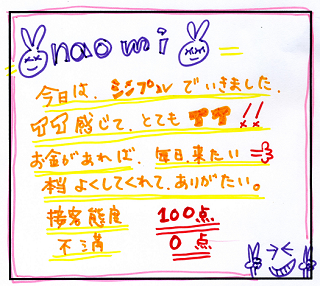 naomi
今日は、シンプルでいきました。
イイ感じで、とてもイイ!!
お金があれば、毎日、来たい
本当よくしてくれて、ありがたい。
接客態度 100点
不満 0点